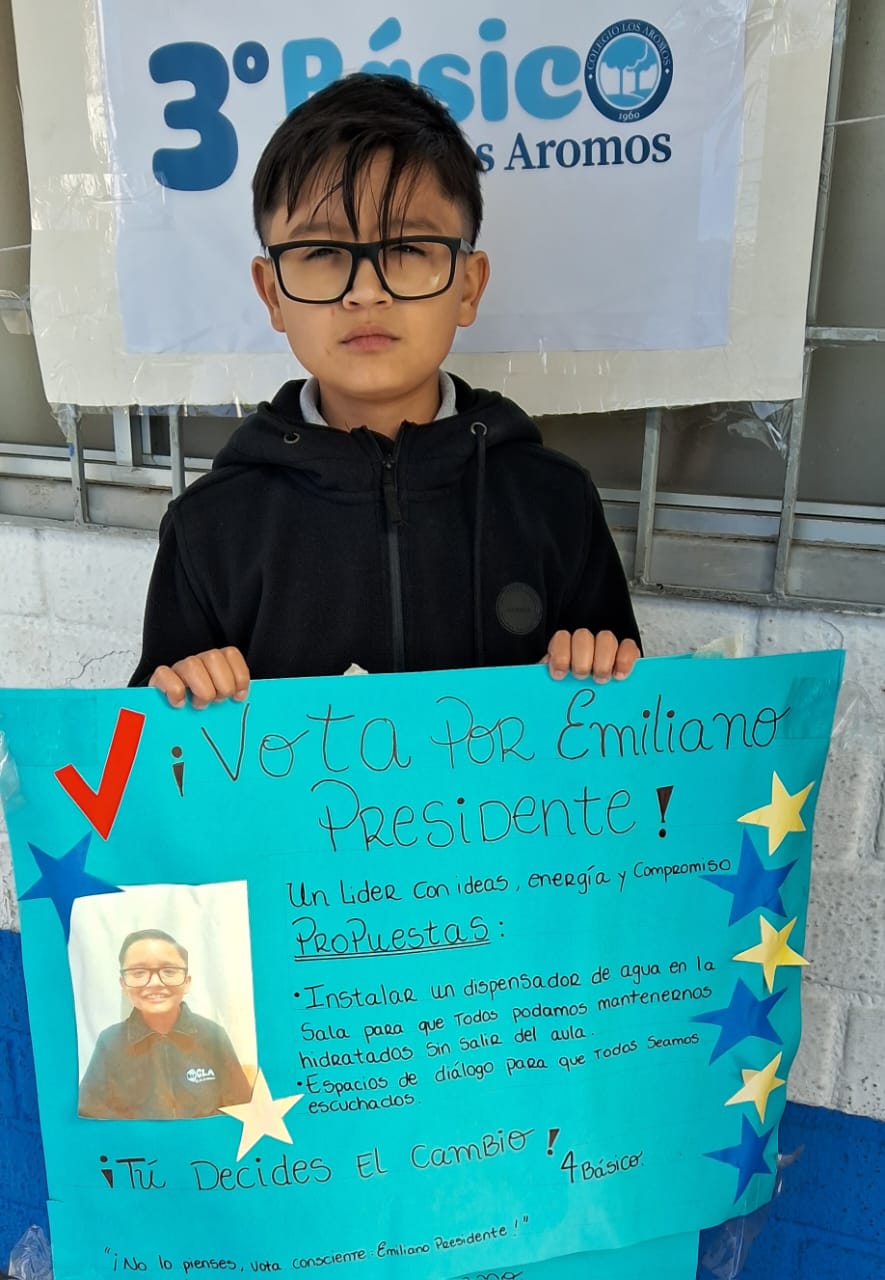 3º Básico
COLEGIO LOS AROMOS
1960
Aromos
¡Vota por Emiliano
Presidente!
Un Lider con ideas, energía y compromiso
Propuestas:
•Instalar un dispensador de agua en la
sala para que todos podamos mantenernos
hidratados sin salir del aula.
•Espacios de diálogo para que todos seamos
escuchados.
CLA
¡Tú Decides El cambio!
4 Básico.
"¡No lo pienses, vota consciente: Emiliano Presidente!"